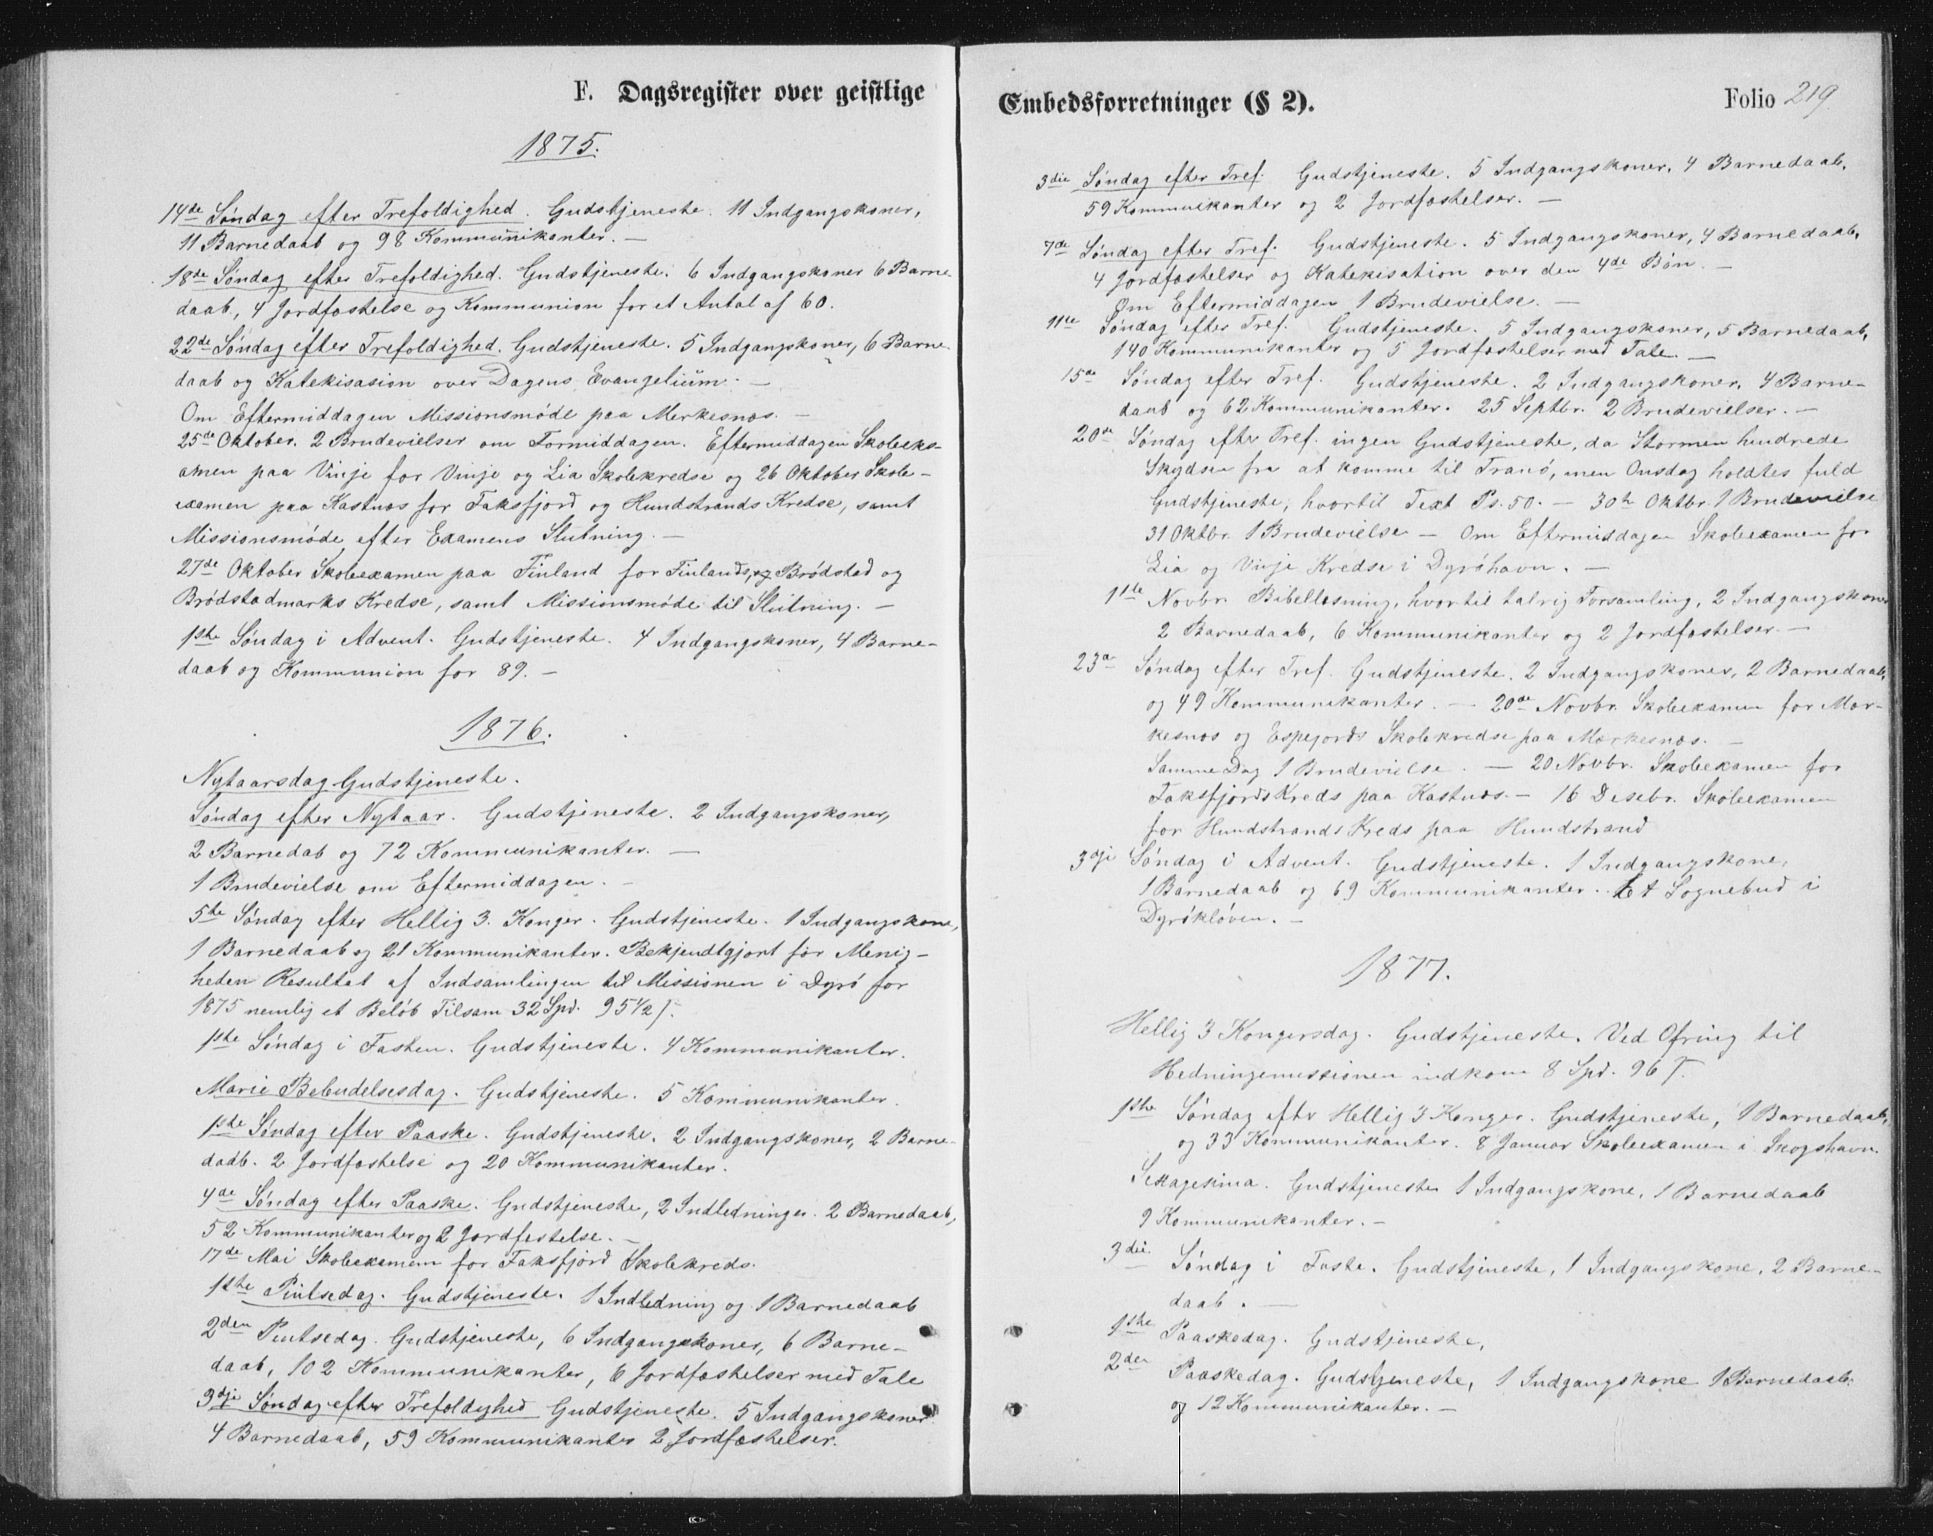 F. Dagsregister over geistlige
1875.
14de Søndag efter Trefoldighed. Gudstjeneste. 11 Indgangskoner,
11 Barnedaab og 98 Kommunikanter. —
18de Søndag efter Trefoldighed. Gudstjeneste. 6 Indgangskoner 6 Barne-
daab, 4 Jordfæstelse og Kommunion for et Antal af 60.
22de Søndag efter Trefoldighed. Gudstjeneste. 5 Indgangskoner, 6 Barne-
daab og Katekisasion over Dagens Evangelium. —
Om Eftermiddagen Missionsmøde paa Merkesnæs. —
25de Oktober. 2 Brudevielser om Formiddagen. Eftermiddagen Skoleeks-
amen paa Vinje for Vinje og Lia Skolekredse og 26 Oktober Skole-
examen paa Kastnæs for Faksfjord og Hundstrands Kredse, samt
Missionsmøde efter Examens Slutning. —
27de Oktober Skoleexamen paa Finland for Finlands, og Brødstad og
Brødstadmarks Kredse, samt Missionsmøde til Slutning. —
1ste Søndag i Advent. Gudstjeneste. 4 Indgangskoner, 4 Barne-
daab og Kommunion for 89. —
1876.
Nytaarsdag Gudstjeneste.
Søndag efter Nytaar. Gudstjeneste. 2 Indgangskoner,
2 Barnedab og 72 Kommunikanter. —
1 Brudevielse om Eftermiddagen. —
5te Søndag efter Hellig 3. Konger. Gudstjeneste. 1 Indgangskone,
1 Barnedaab og 21 Kommunikanter. Bekjendtgjort for Menig-
heden Resultat af Indsamlingen til Missionen i Dyrø for
1875 nemlig et Beløb Tilsam 32 Spd. 95 1/2 f.
1ste Søndag i Fasten. Gudstjeneste. 4 Kommunikanter.
Marie Bebudelsesdag. Gudstjeneste. 5 Kommunikanter.
1ste Søndag efter Paaske. Gudstjeneste. 2 Indgangskoner, 2 Barne-
daab. 2 Jordfæstelse og 20 Kommunikanter.
4de Søndag efter Paaske. Gudstjeneste, 2 Indledninger. 2 Barnedaab,
52 Kommunikanter og 2 Jordfestelse. —
17de Mai Skoleexamem for Faksfjord Skolekreds.
1ste Pintsedag. Gudstjeneste. 1 Indledning og 1 Barnedaab
2den Pintsedag. Gudstjeneste, 6 Indgangskoner, 6 Barne-
daab, 102 Kommunikanter, 6 Jordfæstelser med Tale
3dje Søndag efter Trefoldighed Gudstjeneste. 5 Indgangskoner
4 Barnedaab, 59 Kommunikanter 2 Jordfæstelser.
Embedsforretninger (§ 2).
Folio 219.
3die Søndag efter Tref. Gudstjeneste. 5 Indgangskoner, 4 Barnedaab,
59 Kommunikanter og 2 Jordfæstelser. —
7de Søndag efter Tref. Gudstjeneste. 5 Indgangskoner, 4 Barnedaab,
4 Jordfæstelser og Katekisation over den 4de Bøn. —
Om Eftermiddagen 1 Brudevielse. —
11te Søndag efter Tref. Gudstjeneste. 5 Indgangskoner, 5 Barnedaab,
140 Kommunikanter og 5 Jordfæstelser med Tale. —
15de Søndag efter Tref. Gudstjeneste. 2 Indgangskoner, 4 Barne-
daab og 62 Kommunikanter. 25 Septbr. 2 Brudevielser. —
20de Søndag efter Tref. ingen Gudstjeneste, da Stormen hindrede
Skydsen fra at komme til Tranø, men Onsdag holdtes fuld
Gudstjeneste, hvortil Text Ps. 50. — 30te Oktbr. 1 Brudevielse
31 Oktbr. 1 Brudevielse — Om Eftermiddagen Skoleexamen for
Lia og Vinje Kredse i Dyrøhavn. —
1ste Novbr. Bibellæsning, hvortil talrig Forsamling, 2 Indgangskoner
2 Barnedaab, 6 Kommunikanter og 2 Jordfæstelser. —
23de Søndag efter Tref. Gudstjeneste. 2 Indgangskoner, 2 Barnedaab,
og 49 Kommunikanter. — 20de Novbr. Skoleexamen for Mer-
kesnæs og Espejords Skolekredse paa Merkesnæs. —
Samme Dag 1 Brudevielse. — 20 Novbr. Skoleexamen for
Faksfjords Kreds paa Kastnæs. — 16 Desebr. Skoleexamen
for Hundstrands Kreds paa Hundstrand
3dje Søndag i Advent. Gudstjeneste. 1 Indgangskone,
1 Barnedaab og 69 Kommunikanter. Et Sognebud i
Dyrøkløven. —
1877.
Hellig 3 Kongersdag. Gudstjeneste. Ved Ofring til
Hedningemissionen indkom 8 Spd. 96 f.
1ste Søndag efter Hellig 3 Konger. Gudstjeneste, 1 Barnedaab,
og 33 Kommunikanter. 8 Januar Skoleexamen i Skogshavn.
Sexagesima. Gudstjeneste 1 Indgangskone, 1 Barnedaab
9 Kommunikanter. —
3die Søndag i Faste. Gudstjeneste, 1 Indgangskone, 2 Barne-
daab. —
1ste Paaskedag. Gudstjeneste,
2den Paaskedag. Gudstjeneste, 1 Indgangskone 1 Barnedaab
og 12 Kommunikanter. —